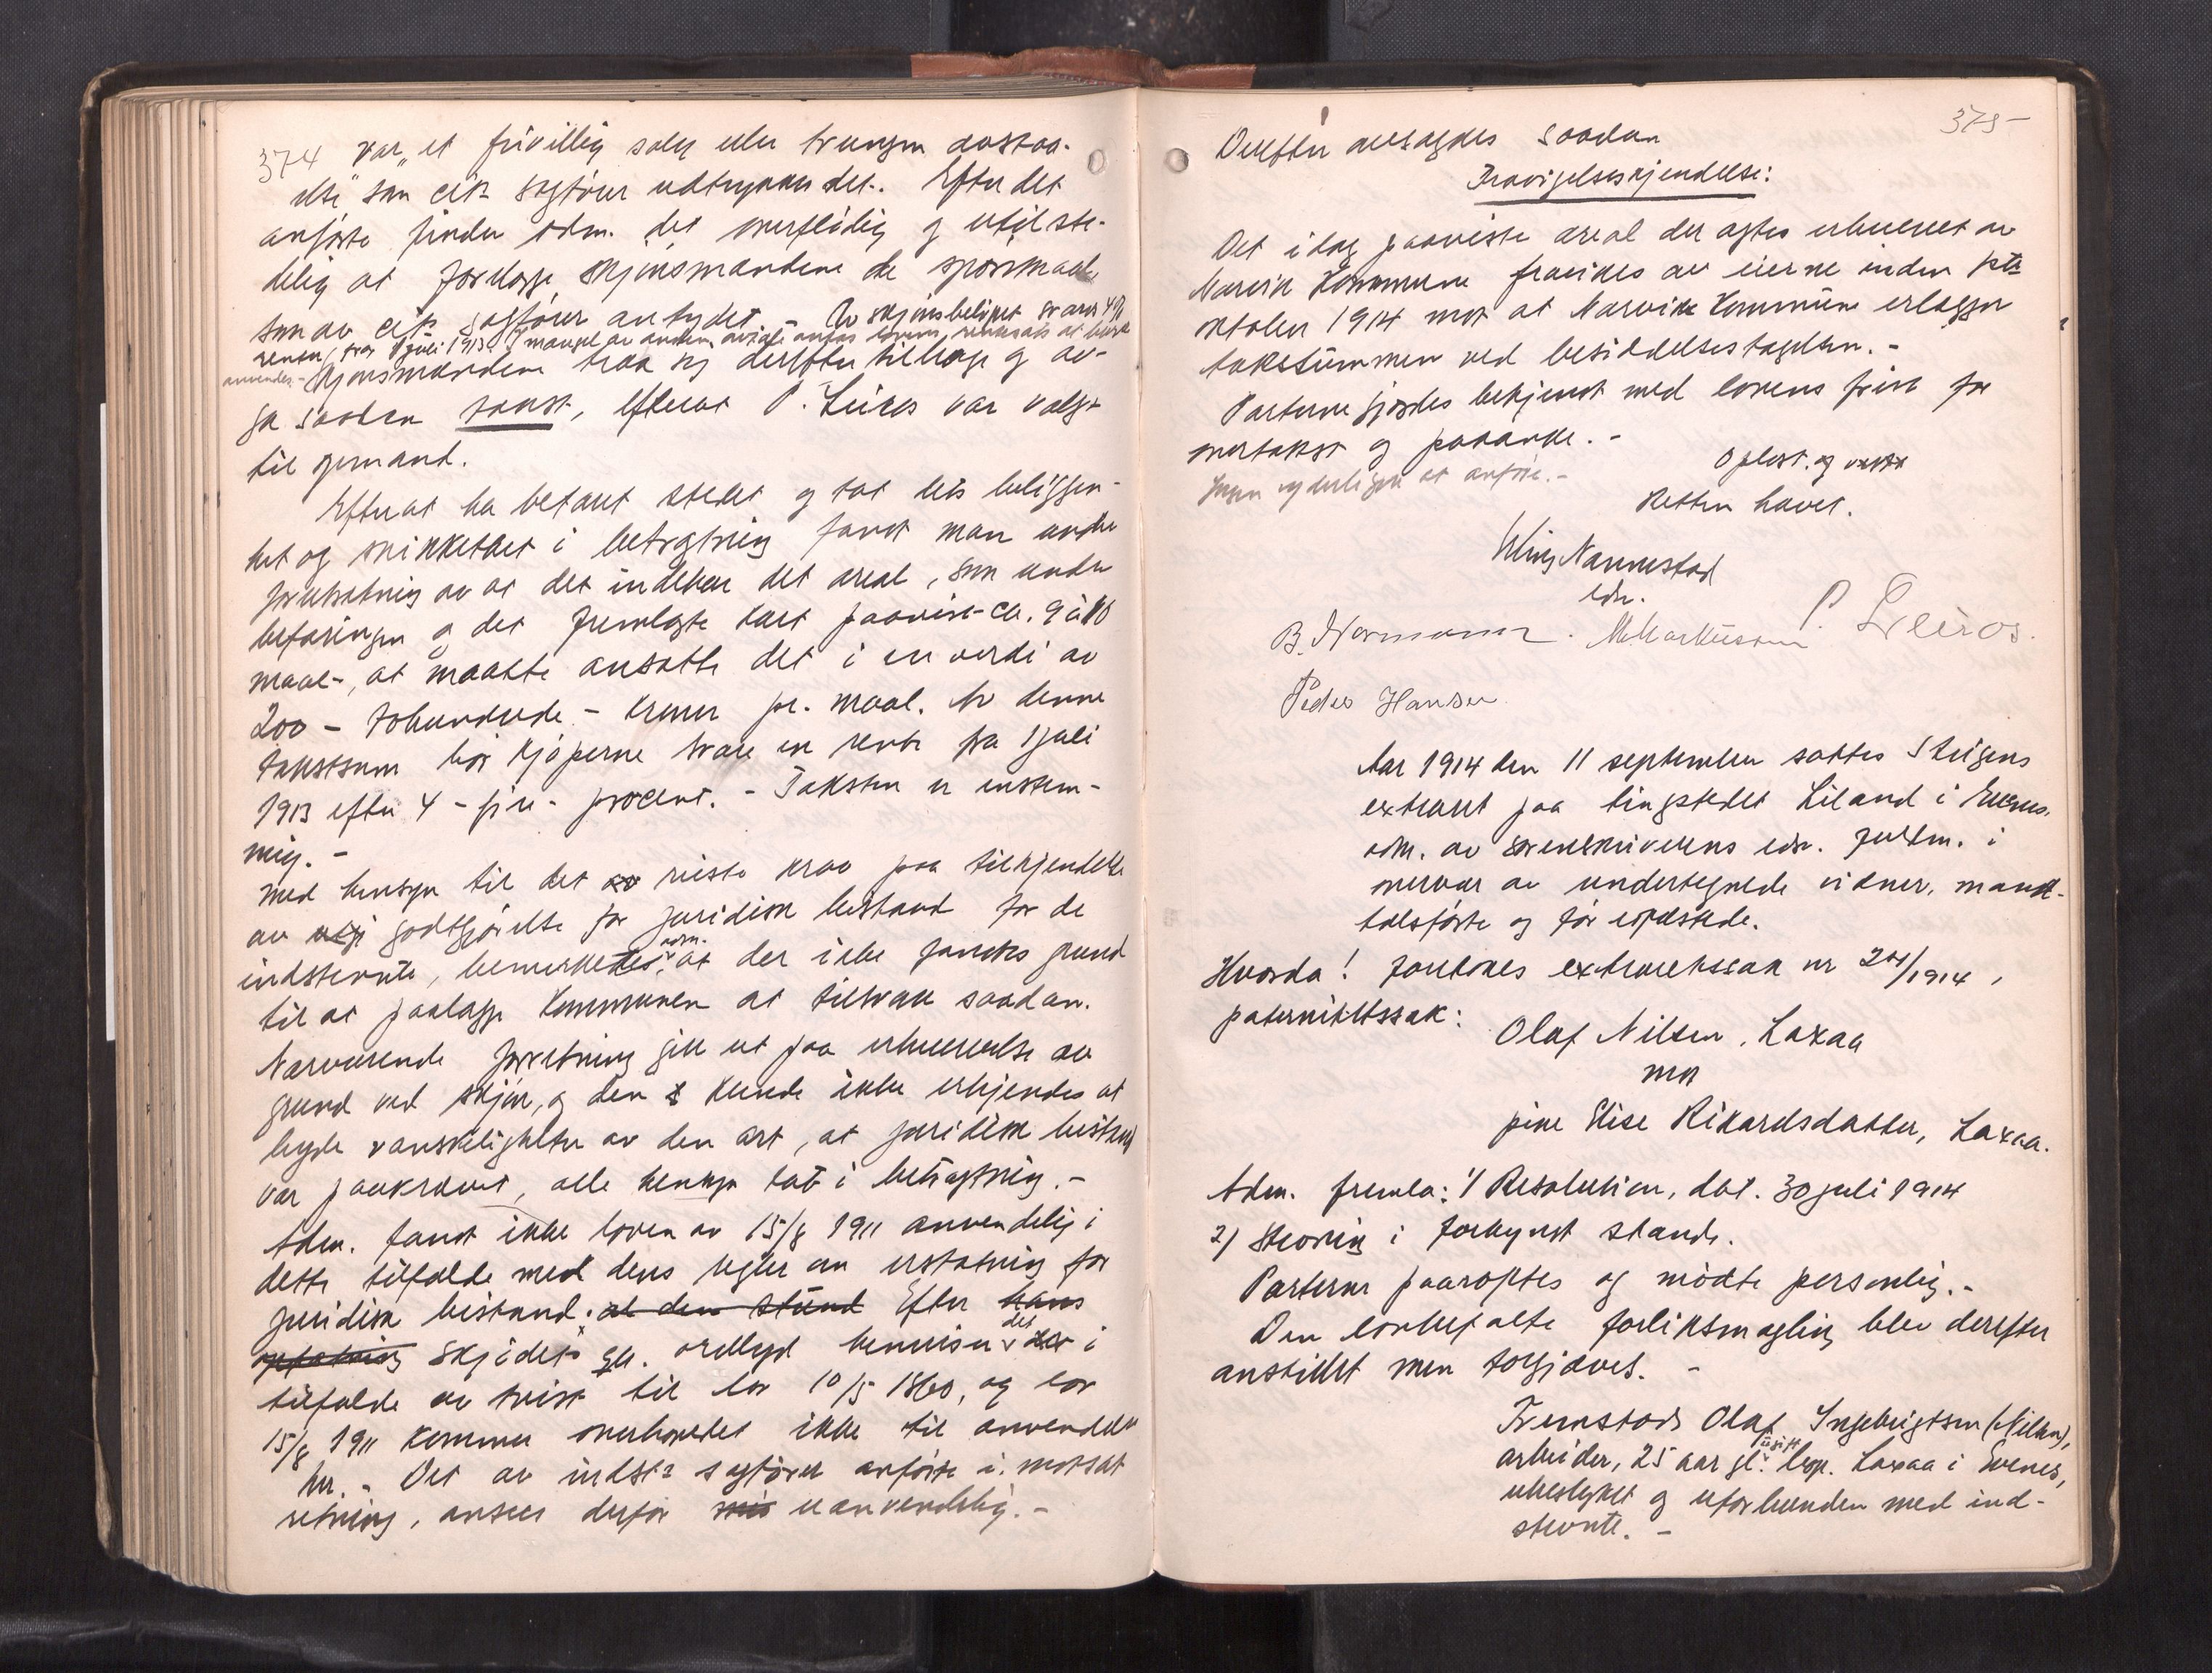 374 var "et frivillig salg eller tvungen avstaa-
else" som cit. sagfører udtrykker det. Efter det
anførte finder adm. det overflødig og utilste-
delig at forelægge skjønsmændene de spørsmaal
som av cit. sagfører antydet. - Av skjønsbeløpet svares 4%
renter fra 1 juli 1913. I mangel av anden avtale antas lovens rentesats at burde
anvendes. - Skjønsmændene trak sig derefter tilbage og av-
ga saadan takst, efterat P. Leiros var valgt
til opmand.
Efterat ha betraet stedet og tat dets beliggen-
het og beskaffenhet i betragtning fandt man under
forutsætning av at det indeholder det areal, som under
befaringen og det fremlagte kart paavist - ca. 9 à 10
maal -, at maatte ansætte det i en verdi av
200 - tohundrede - kroner pr. maal. Av denne
takstsum bør kjøperne svare en rente fra 1 juli
1913 efter 4 - fire - procent. - Taksten er enstem-
mig. -
Med hensyn til det av reiste krav paa tilkjendelse
av godtgjørelse for juridisk bistand for de
indstevnte, bemerkedes av adm. at der ikke fandtes grund
til at paalægge kommunen at tilsvare saadan.
Nærværende forretning gik ut paa erhvervelse av
grund ved skjøn, og den kunde ikke erkjendes at
byde vanskeligheter av den art, at juridisk bistand
var paakrævet, alle hensyn tat i betragtning. -
Adm. fandt ikke loven av 15/8 1911 anvendelig i
dette tilfælde med dens regler om erstatning for
juridisk bistand. at den stund Efter hans
opfatning skjødets ordlyd henvises det i
tilfælde av tvist til lov 10/5 1860, og lov
15/8 1911 kommer overhovedet ikke til anvendelse
her. - Det av indst. sagfører anførte i motsat
retning, ansees derfor uanvendelig. -
375
Derefter avsagdes saadan
Fravigelseskjendelse:
Det idag paaviste areal der agtes erhvervet av
Narvik Kommune fravides av eierne inden 1ste
oktober 1914 mot at Narvik Kommune erlægger
takstsummen ved besiddelsestagelsen. -
Parterne gjordes bekjendt med lovens frist for
overtakst og paaanke. -
Oplæst og vedtat
Ingen yderligere at anføre. -
Retten hævet.
Nannestad
edsv.
B. Normann. M. Markussen P. Leiros.
Peder Hansen
Aar 1914 den 11 september sattes Steigens
extraret paa tingstedet Liland i Evenes,
adm. av sorenskriverens edsv. fuldm. i
overvær av undertegnede vidner, mand-
talsførte og før edfæstede.
Hvorda! foretokes extraretssak nr 24/1914,
paternitetssak:
Olaf Nilsen, Laxaa
mot
pike Elise Rikardsdatter, Laxaa.
Adm. fremla: 1/ Resolution, dat. 30 juli 1914
2/ Stevning i forkyndt stand.
Parterne paaroptes og mødte personlig. -
Den lovbefalte forliksmægling blev derefter
anstillet men forgjæves. -
Fremstod Olaf Ingebrigtsen (Nilsen),
arbeider, 25 aar gl. ugift bop. Laxaa i Evenes,
ubeslegtet og uforbunden med ind-
stevnte. -